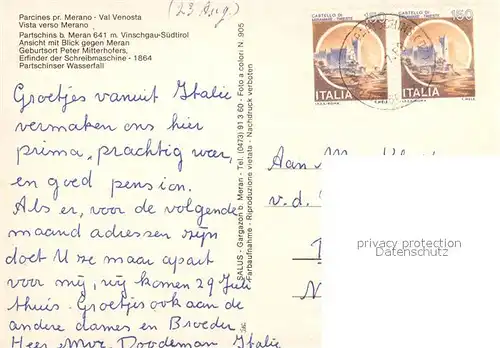 Parcines pr. Merano - Val Venosta
Vista verso Merano
Partschins b. Meran 641 m. Vinschgau-Südtirol
Ansicht mit Blick gegen Meran
Geburtsort Peter Mitterhofers,
Erfinder der Schreibmaschine - 1864
Partschinser Wasserfall
(23 Aug.)
Groetjes vanuit Italie
vermaken ons hier
prima, prachtig weer,
en goed pension.
Als er, voor de volgende
maand adressen zijn
doet U ze maar apart
voor mij, wij komen 29 Juli
thuis. Groetjes ook aan de
andere dames en Broeder.
Heer Mvr. Doodeman Italie
SALUS - Gargazon b. Meran - Tel. (0473) 91 3 60 - Foto a colori N. 905
Farbaufnahme - Riproduzione vietata - Nachdruck verboten
CASTELLO DI MIRAMARE TRIESTE
ITALIA
I.P.Z.S. ROMA
CASTELLO DI MIRAMARE TRIESTE
150
ITALIA
I.P.Z.S. ROMA
Aan
v.d.
Privacy protection
Datenschutz